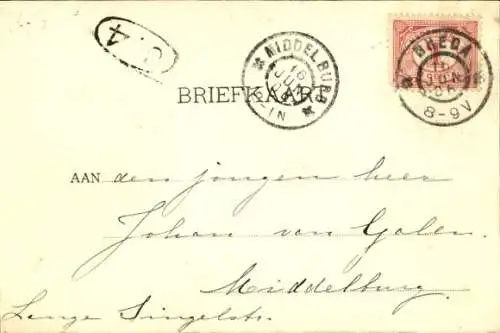 4
MIDDELBURG
16
JUN
-IN
BREDA
JUN
8-9V
BRIEFKAART
AAN den jongen heer
Johan van Galen.
Middelburg.
Lange Singelstr.